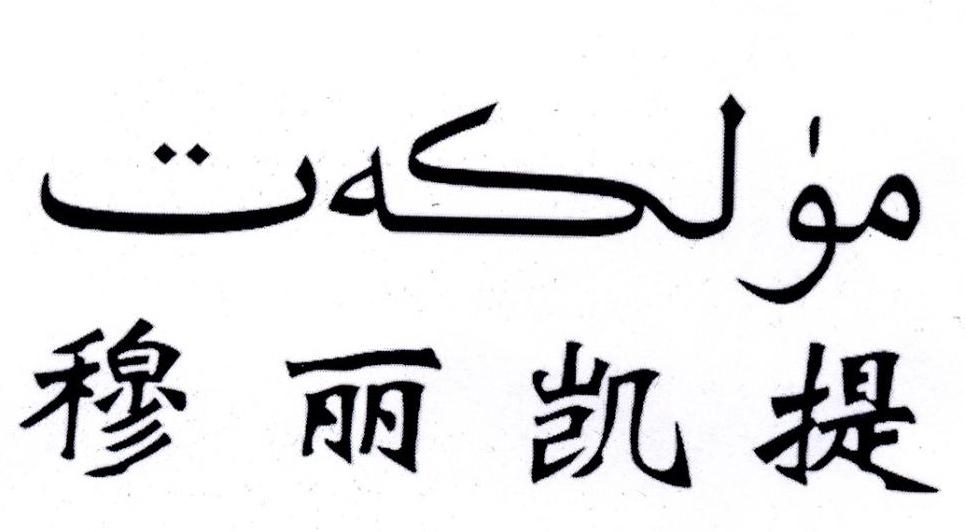 مۈلكەت
穆丽凯提